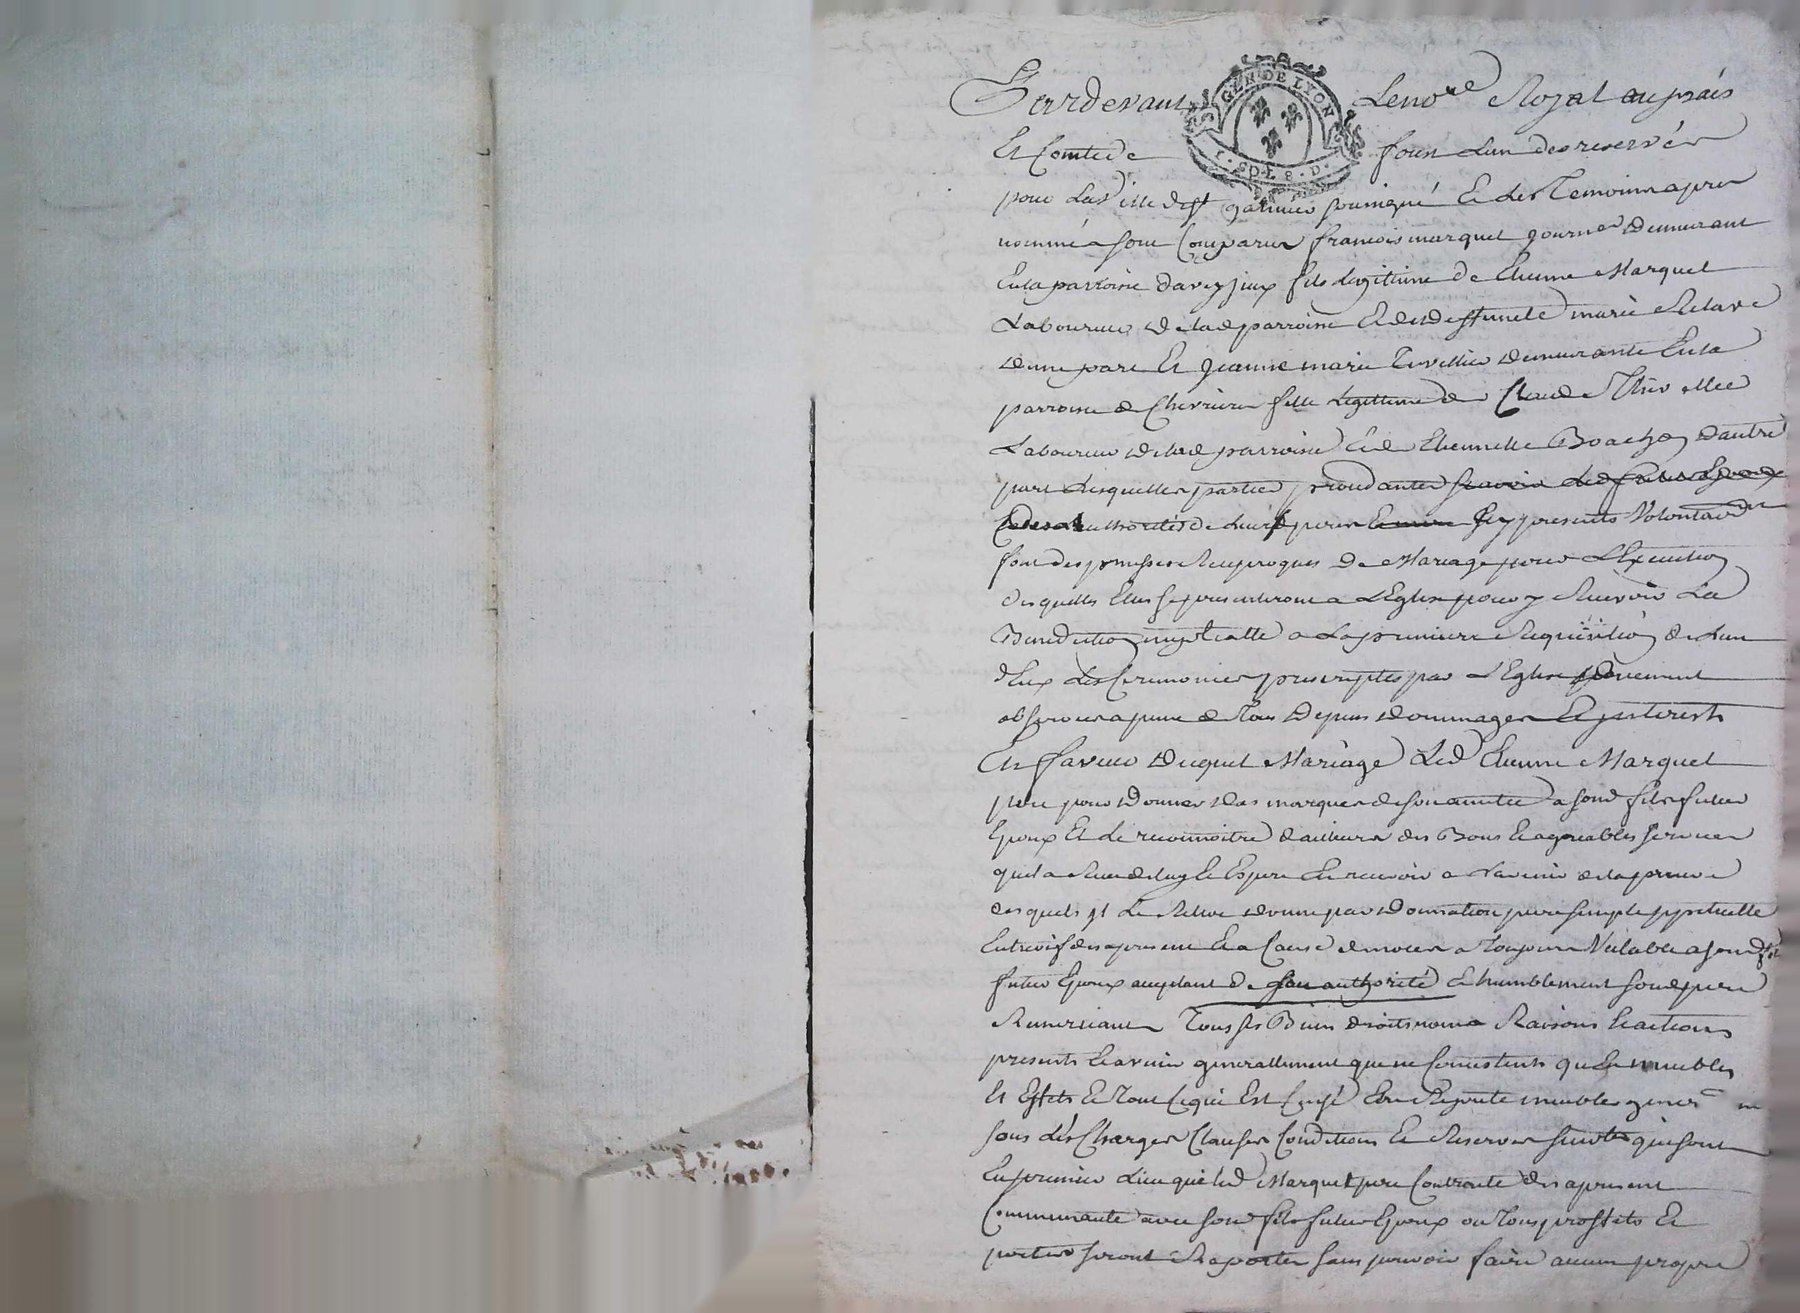 Pardevant Le no.re Royal au païs
GEN DE LYON
Et Comté de forest Lun des reservés
pour La Ville de st galmier soussigné Et des Temoins apres
nommés sont Comparus françois marquet journ.er demeurant
En la parroisse d'aveyzieux fils Legitime de Etienne Marquet
Laboureur de lad parroisse Et de deffunte marie
dune part Et Jeanne marie Thevellier demeurante En la
parroisse de Chevrieres fille Legittime de Claude
Laboureur de lad parroisse Et de Etiennette d'autre
part Lesquelles parties
authorités de Leurs peres Icy presents Volontairem
font des promesses Reciproques de Mariage pour L'Execution
desquelles Elles se presenteront a L'Eglise pour y Recevoir La
Benediction nuptialle a La premiere Requisition de Lun
d'Eux Les Ceremonies prescriptes par L'Eglise
observées a peine de Tous Depens dommages Et jnterests
En faveur duquel Mariage Led Etienne Marquet
pere pour donner des marques de son amitié a sond fils futur
Epoux Et Le reconnoitre d'ailleurs des Bons Et agreables services
quil a Receu de luy Et Espere En recevoir a L'avenir de la preuve
desquels jl Le Releve donne par donnation pure simple
Entre vifs des a present Et a Cause de noces a Toujours Valable a sond fils
futur Epoux acceptant de son authorité Et humblement sond pere
Remerciant Tous ses Biens droits noms Raisons Et actions
presents Et avenir generallement que ne Consistents qu'En meubles
Et Effets Et Tout Ce qui Est Censé Et Reputé meubles
sous Les Charges Clauses Conditions Et Reserves suivtes qui sont
En premier Lieu que led Marquet pere Contracte des a present
Communauté avec sond fils futur Epoux ou Tous proffits Et
pertes seront Raportés sans pouvoir faire aucun propre